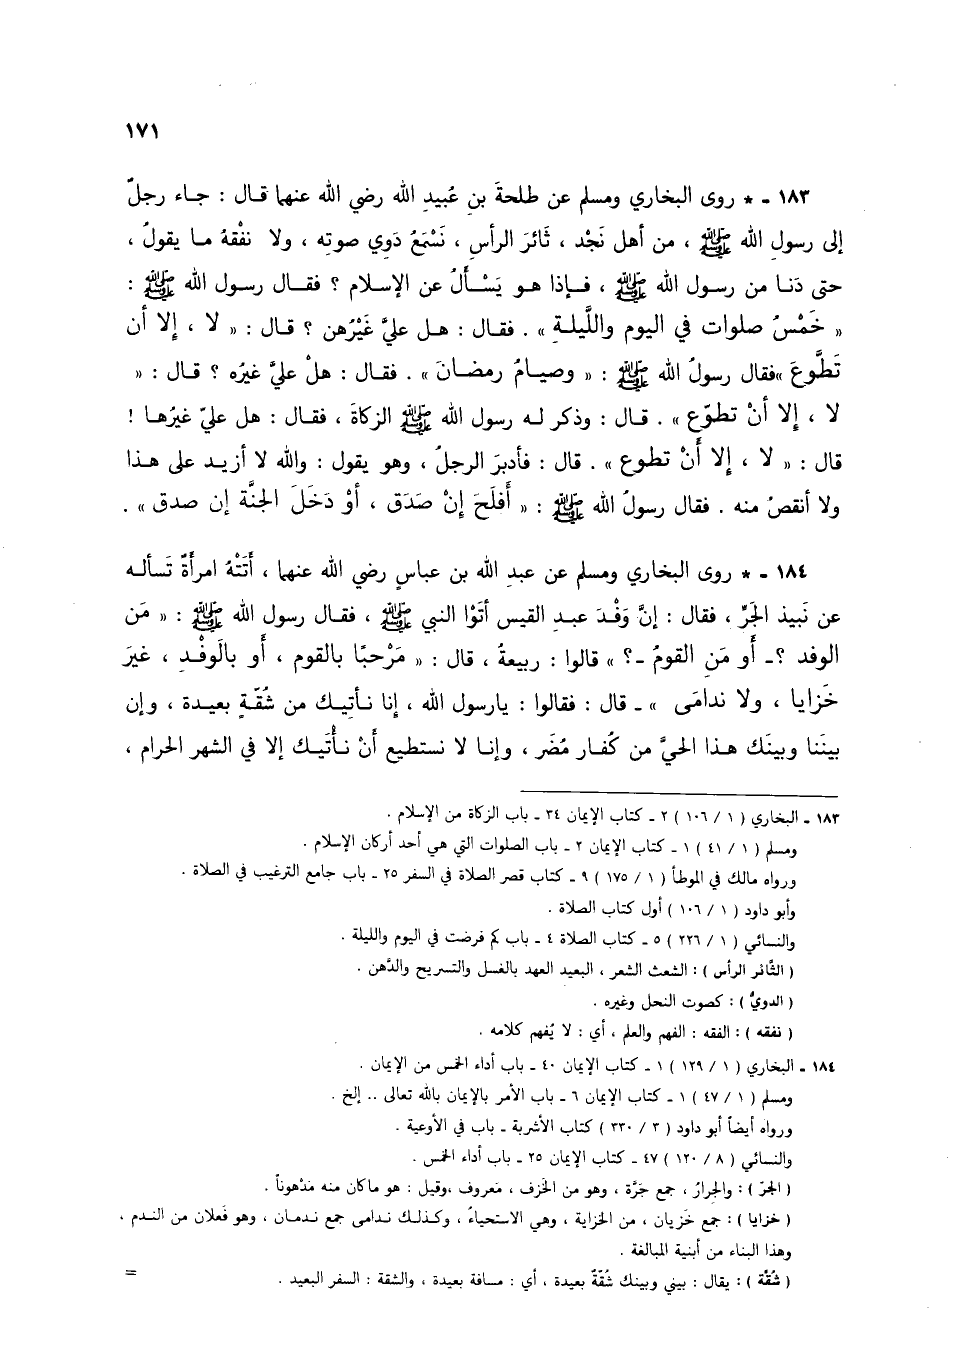 ١٧١
١٨٣ - * روى البخاري ومسلم عن طلحةَ بنِ عُبيدِ الله رضي الله عنهما قال : جاء رجلٌ
إلى رسول الله ﷺ ، من أهل نَجْد ، ثَائرَ الرأس ، نَسْمَعُ دَوي صوتِه ، ولا نفْقهُ ما يقولُ ،
حتى دَنا من رسول الله ﷺ ، فإذا هو يَسْأَلُ عن الإسلام ؟ فقال رسول الله ﷺ :
« خَمْسُ صلوات في اليوم واللَّيلةِ » . فقال : هل عليَّ غَيْرُهن ؟ قال : « لا ، إلا أن
تَطَّوعَ »فقال رسولُ الله ﷺ : « وصيامُ رمضانَ » . فقال : هلْ عليَّ غيرُه ؟ قال : «
لا ، إلا أنْ تطوّع » . قال : وذكر له رسول الله ﷺ الزكاةَ ، فقال : هل عليّ غيرُها !
قال : « لا ، إلا أَنْ تطوع » . قال : فأدبرَ الرجلُ ، وهو يقول : والله لا أزيد على هذا
ولا أنقصُ منه . فقال رسولُ الله ﷺ : « أَفلَحَ إنْ صَدَق ، أوْ دَخَلَ الجنَّة إن صدق » .
١٨٤ - * روى البخاري ومسلم عن عبد الله بن عباسٍ رضي الله عنهما ، أَتَتْهُ امرأةٌ تَسأله
عن نَبيذ الجَرِّ ، فقال : إنَّ وَفْدَ عبدِ القيس أتَوْا النبي ﷺ ، فقال رسول الله ﷺ : « مَن
الوفد ؟- أو مَنِ القومُ -؟ » قالوا : ربيعةُ ، قال : « مَرْحبًا بالقوم ، أو بالَوفْدِ ، غيرَ
خَزايا ، ولا ندامَى » - قال : فقالوا : يارسول الله ، إنا نأتِيك من شُقّةٍ بعيدة ، وإن
بينَنا وبينَك هذا الحيَّ من كُفار مُضَر ، وإنا لا نستطيع أنْ نأْتَيك إلا في الشهر الحرام ،
١٨٣ - البخاري ( ١ / ١٠٦ ) ٢ - كتاب الإيمان ٣٤ - باب الزكاة من الإسلام .
ومسلم ( ١ / ٤١ ) ١ - كتاب الإيمان ٢ - باب الصلوات التي هي أحد أركان الإسلام .
ورواه مالك في الموطأ ( ١ / ١٧٥ ) ٩ - كتاب قصر الصلاة في السفر ٢٥ - باب جامع الترغيب في الصلاة .
وأبو داود ( ١ / ١٠٦ ) أول كتاب الصلاة .
والنسائي ( ١ / ٢٢٦ ) ٥ - كتاب الصلاة ٤ - باب كم فرضت في اليوم والليلة .
( الثَّائر الرأس ) : الشعث الشعر ، البعيد العهد بالغسل والتسريح والدَّهن .
( الدويُّ ) : كصوت النحل وغيره .
( نفقه ) : الفقه : الفهم والعلم ، أي : لا يُفهم كلامه .
١٨٤ - البخاري ( ١ / ١٢٩ ) ١ - كتاب الإيمان ٤٠ - باب أداء الخمس من الإيمان .
ومسلم ( ١ / ٤٧ ) ١ - كتاب الإيمان ٦ - باب الأمر بالإيمان بالله تعالى .. إلخ .
ورواه أيضاً أبو داود ( ٣ / ٣٣٠ ) كتاب الأشربة - باب في الأوعية .
والنسائي ( ٨ / ١٢٠ ) ٤٧ - كتاب الإيمان ٢٥ - باب أداء الخمس .
( الجرّ ) : والجرارُ ، جمع جَرَّة ، وهو من الخَزف ، مَعروف ،وقيل : هو ماكان منه مَدْهوناً .
( خزايا ) : جمع خَزيان ، من الخزاية ، وهي الاستحياءُ ، وكذلك ندامى جمع ندمان ، وهو فَعلان من الندم ،
وهذا البناء من أبنية المبالغة .
( شُقَّة ) : يقال : بيني وبينك شُقَّةٌ بعيدة ، أي : مسافة بعيدة ، والشقة : السفر البعيد .
=